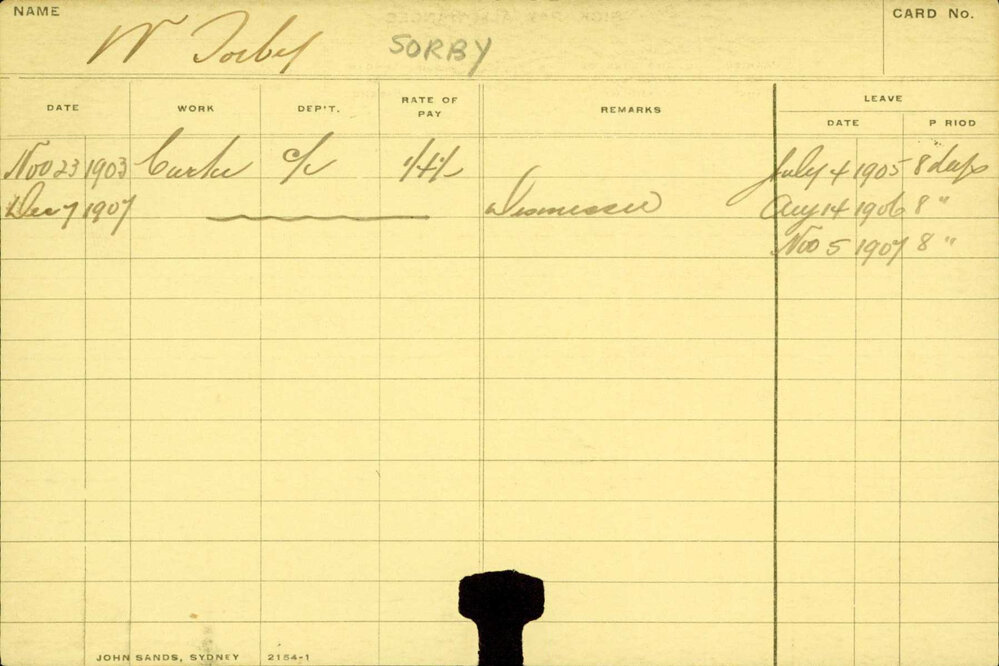 NAME
CARD No.
W Sorby SORBY
DATE WORK DEP'T. RATE OF PAY REMARKS LEAVE
DATE P RIOD
Nov 23 1903 July 4 1905 8 days
Dec 7 1907 Dismissed Aug 14 1906 8 "
Nov 5 1907 8 "
JOHN SANDS, SYDNEY 2154-1